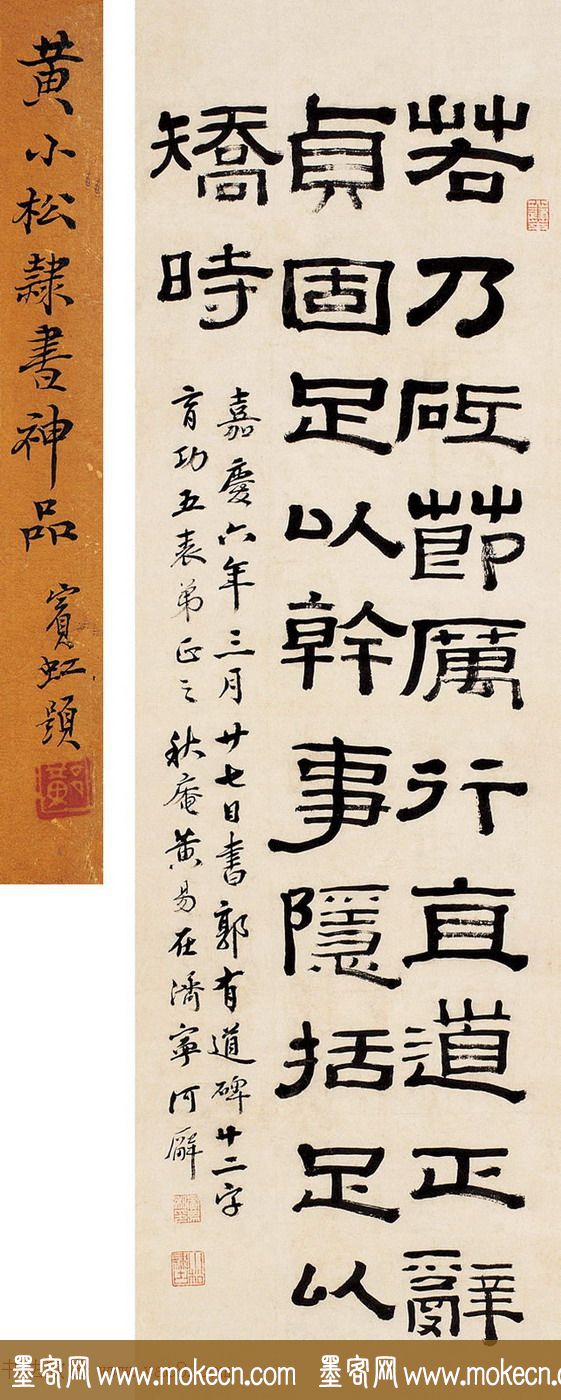 若乃砥節厲行直道正辭
貞固足以幹事隱括足以
矯時
嘉慶六年三月廿七日書郭有道碑廿二字
育功五表弟正之秋盦黄易在濟寧河廨
黄小松隸書神品
賓虹題
墨客网 www.mokecn.com 墨客网 www.mokecn.com